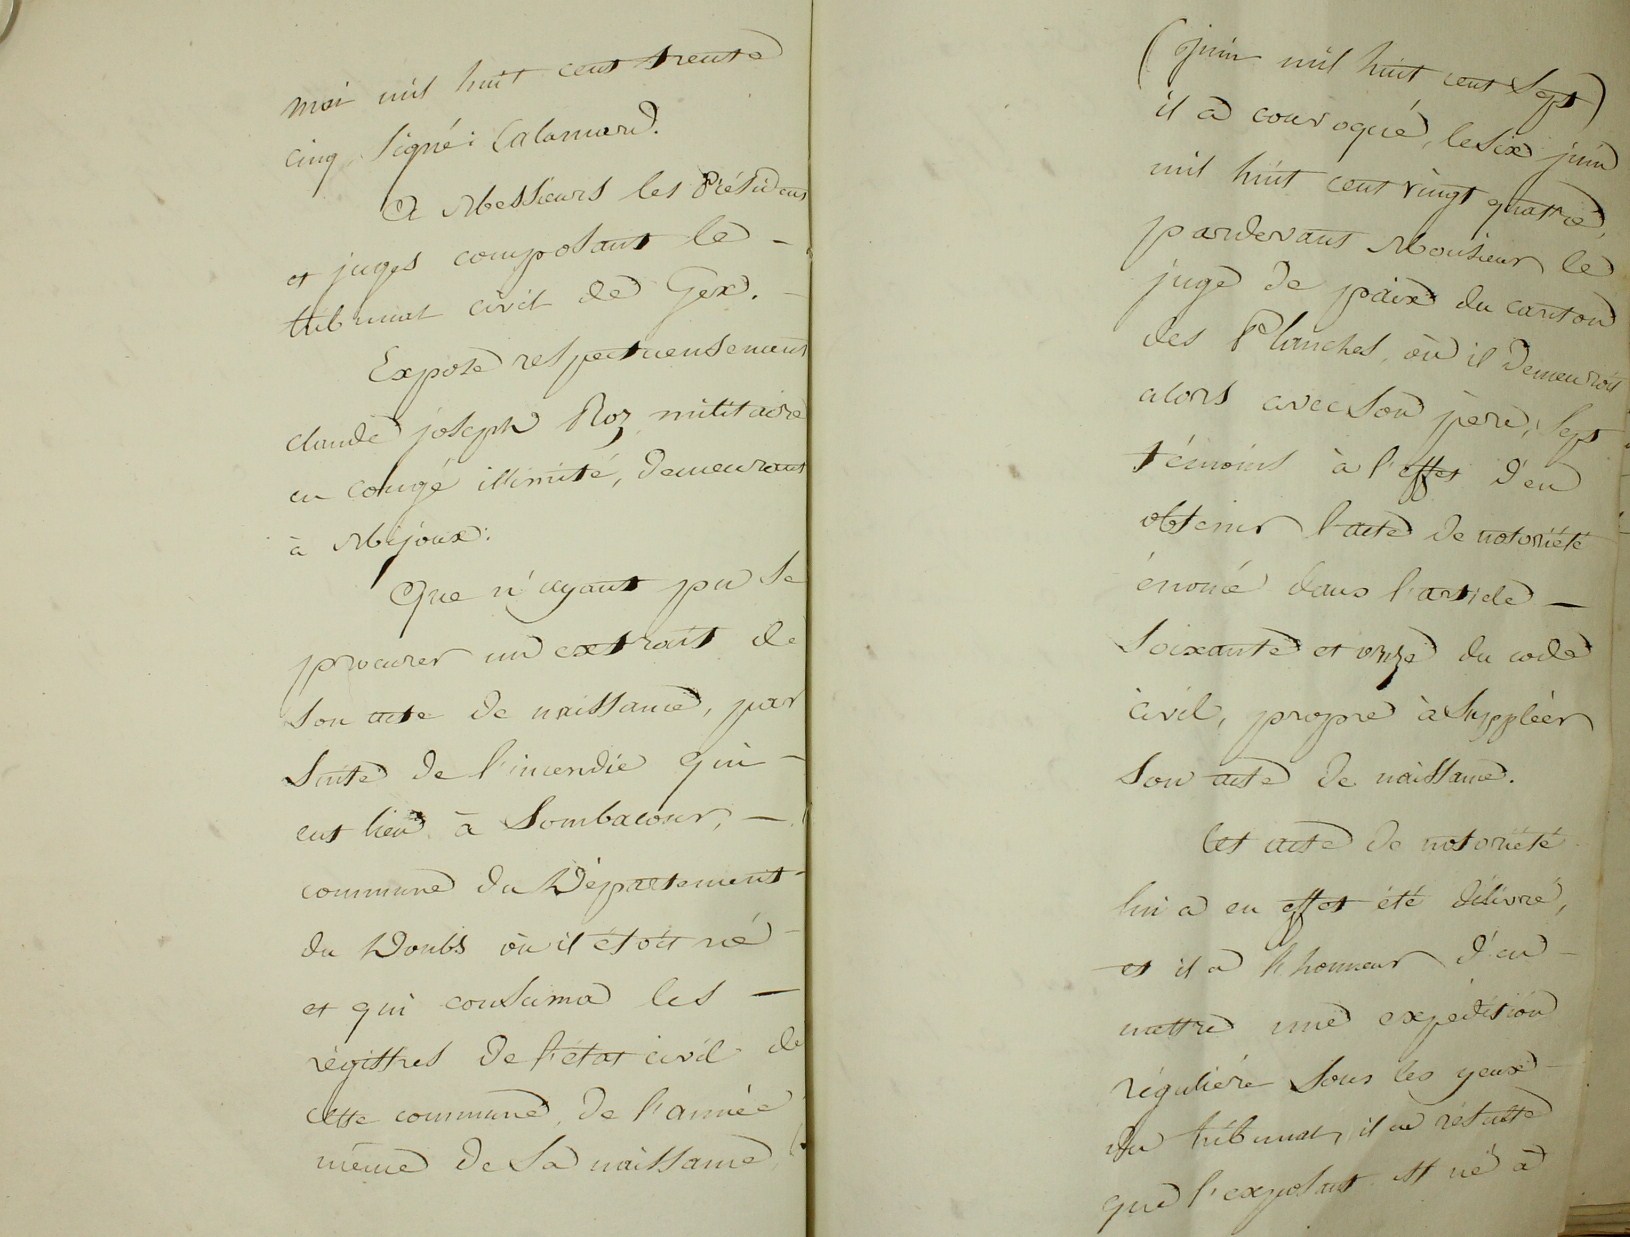 mai mil huit cent trente
cinq, signé: Calamard.
A Messieurs les Présidens
et juges composant le –
tribunal civil de Gex. –
Expose respectueusement
claude joseph Roz militaire
en congé illimité, demeurant
à Mijoux:
Que n'ayant pu se
procurer un extrait de
son acte de naissance, par
suite de l'incendie qui –
eut lieu à Sombacour, –
commune du Département
du Doubs où il étoit né –
et qui consuma les –
régistres de l'état civil de
cette commune, de l'année
même de sa naissance,
(juin mil huit cent sept)
il a convoqué, le six juin
mil huit cent vingt quatre,
pardevant Monsieur le
juge de paix du canton
des Planches, où il demeuroit
alors avec son père, sept
témoins à l'effet d'en
obtenir l'acte de notoriété
énoncé dans l'article –
soixante et onze du code
civil, propre à suppléer
son acte de naissance.
Cet acte de notoriété
lui a en effet été délivré,
et il a l'honneur d'en –
mettre une expédition
régulière sous les yeux –
du tribunal, il en résulte
que l'exposant est né à